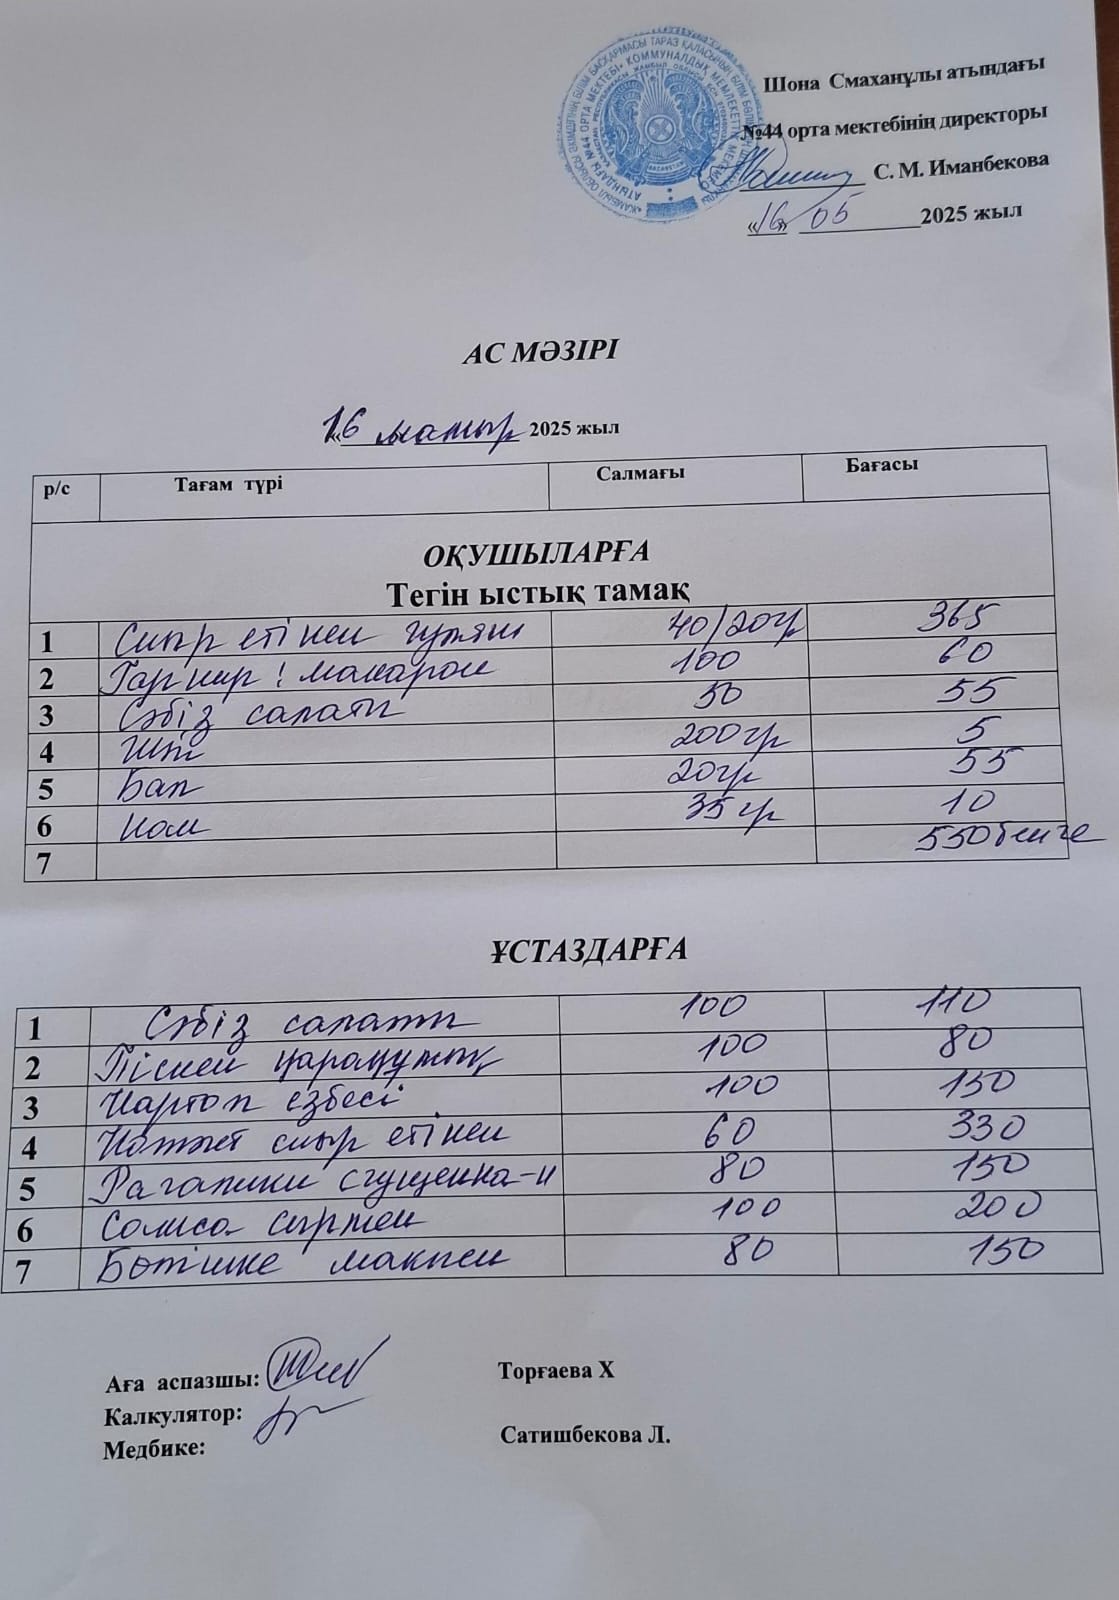 Шона Смаханұлы атындағы
№44 орта мектебінің директоры
С. М. Иманбекова
«16» 05 2025 жыл
АС МӘЗІРІ
«16 мамыр 2025 жыл
р/с Тағам түрі Салмағы Бағасы
ОҚУШЫЛАРҒА
Тегін ыстық тамақ
1 Сиыр етінен гуляш 40/20гр 365
2 Гарнир: макарон 100 60
3 Сәбіз салаты 50 55
4 Шәй 200гр 5
5 Бал 20гр 55
6 Нан 35гр 10
7 550 теңге
ҰСТАЗДАРҒА
1 Сәбіз салаты 100 110
2 Піскен қарақұмық 100 80
3 Картоп езбесі 100 150
4 Котлет сиыр етінен 60 330
5 Рагалики сгущенка-н 80 150
6 Самса сырмен 100 200
7 Бөтішке макпен 80 150
Аға аспазшы: Торғаева Х
Калкулятор:
Медбике: Сатишбекова Л.